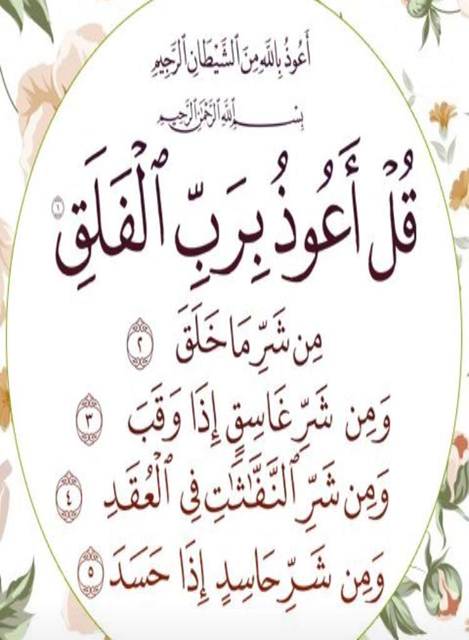 أَعُوذُ بِاللَّهِ مِنَ الشَّيْطَانِ الرَّجِيمِ
بِسْمِ اللَّهِ الرَّحْمَٰنِ الرَّحِيمِ
قُلْ أَعُوذُ بِرَبِّ ٱلْفَلَقِ ١
مِن شَرِّ مَا خَلَقَ ٢
وَمِن شَرِّ غَاسِقٍ إِذَا وَقَبَ ٣
وَمِن شَرِّ ٱلنَّفَّٰثَٰتِ فِى ٱلْعُقَدِ ٤
وَمِن شَرِّ حَاسِدٍ إِذَا حَسَدَ ٥